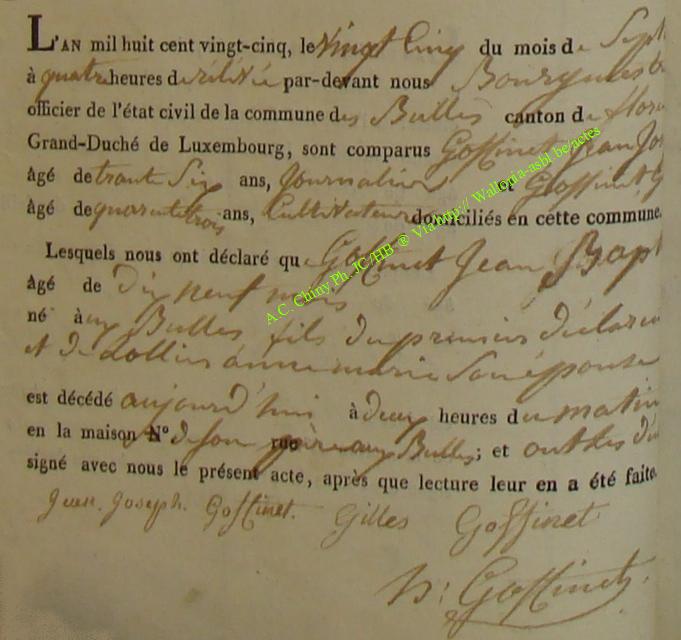 L'AN mil huit cent vingt-cinq, le vingt cinq du mois de Sept
à quatre heures de rélévée par-devant nous Bourgmest
officier de l'état civil de la commune des Bulles canton de flor
Grand-Duché de Luxembourg, sont comparus Goffinet Jean Jos
âgé de trante Six ans, Journalier et Goffinet G
âgé de quarente trois ans, Cultivateurs domiciliés en cette commune.
Lesquels nous ont déclaré que Goffinet Jean Bapt
âgé de dix neuf mois
né aux Bulles fils du premier déclar
et de Collin anne marie Son épouse
est décédé aujourd'hui à deux heures du matin
en la maison N° de Son rue père aux Bulles; et ont les d
signé avec nous le présent acte, après que lecture leur en a été faite.
Jean. Joseph. Goffinet. Gilles Goffinet
h: Goffinet.
A.C. Chiny Ph. JC/HB ® Via http:// Wallonia-asbl be/actes